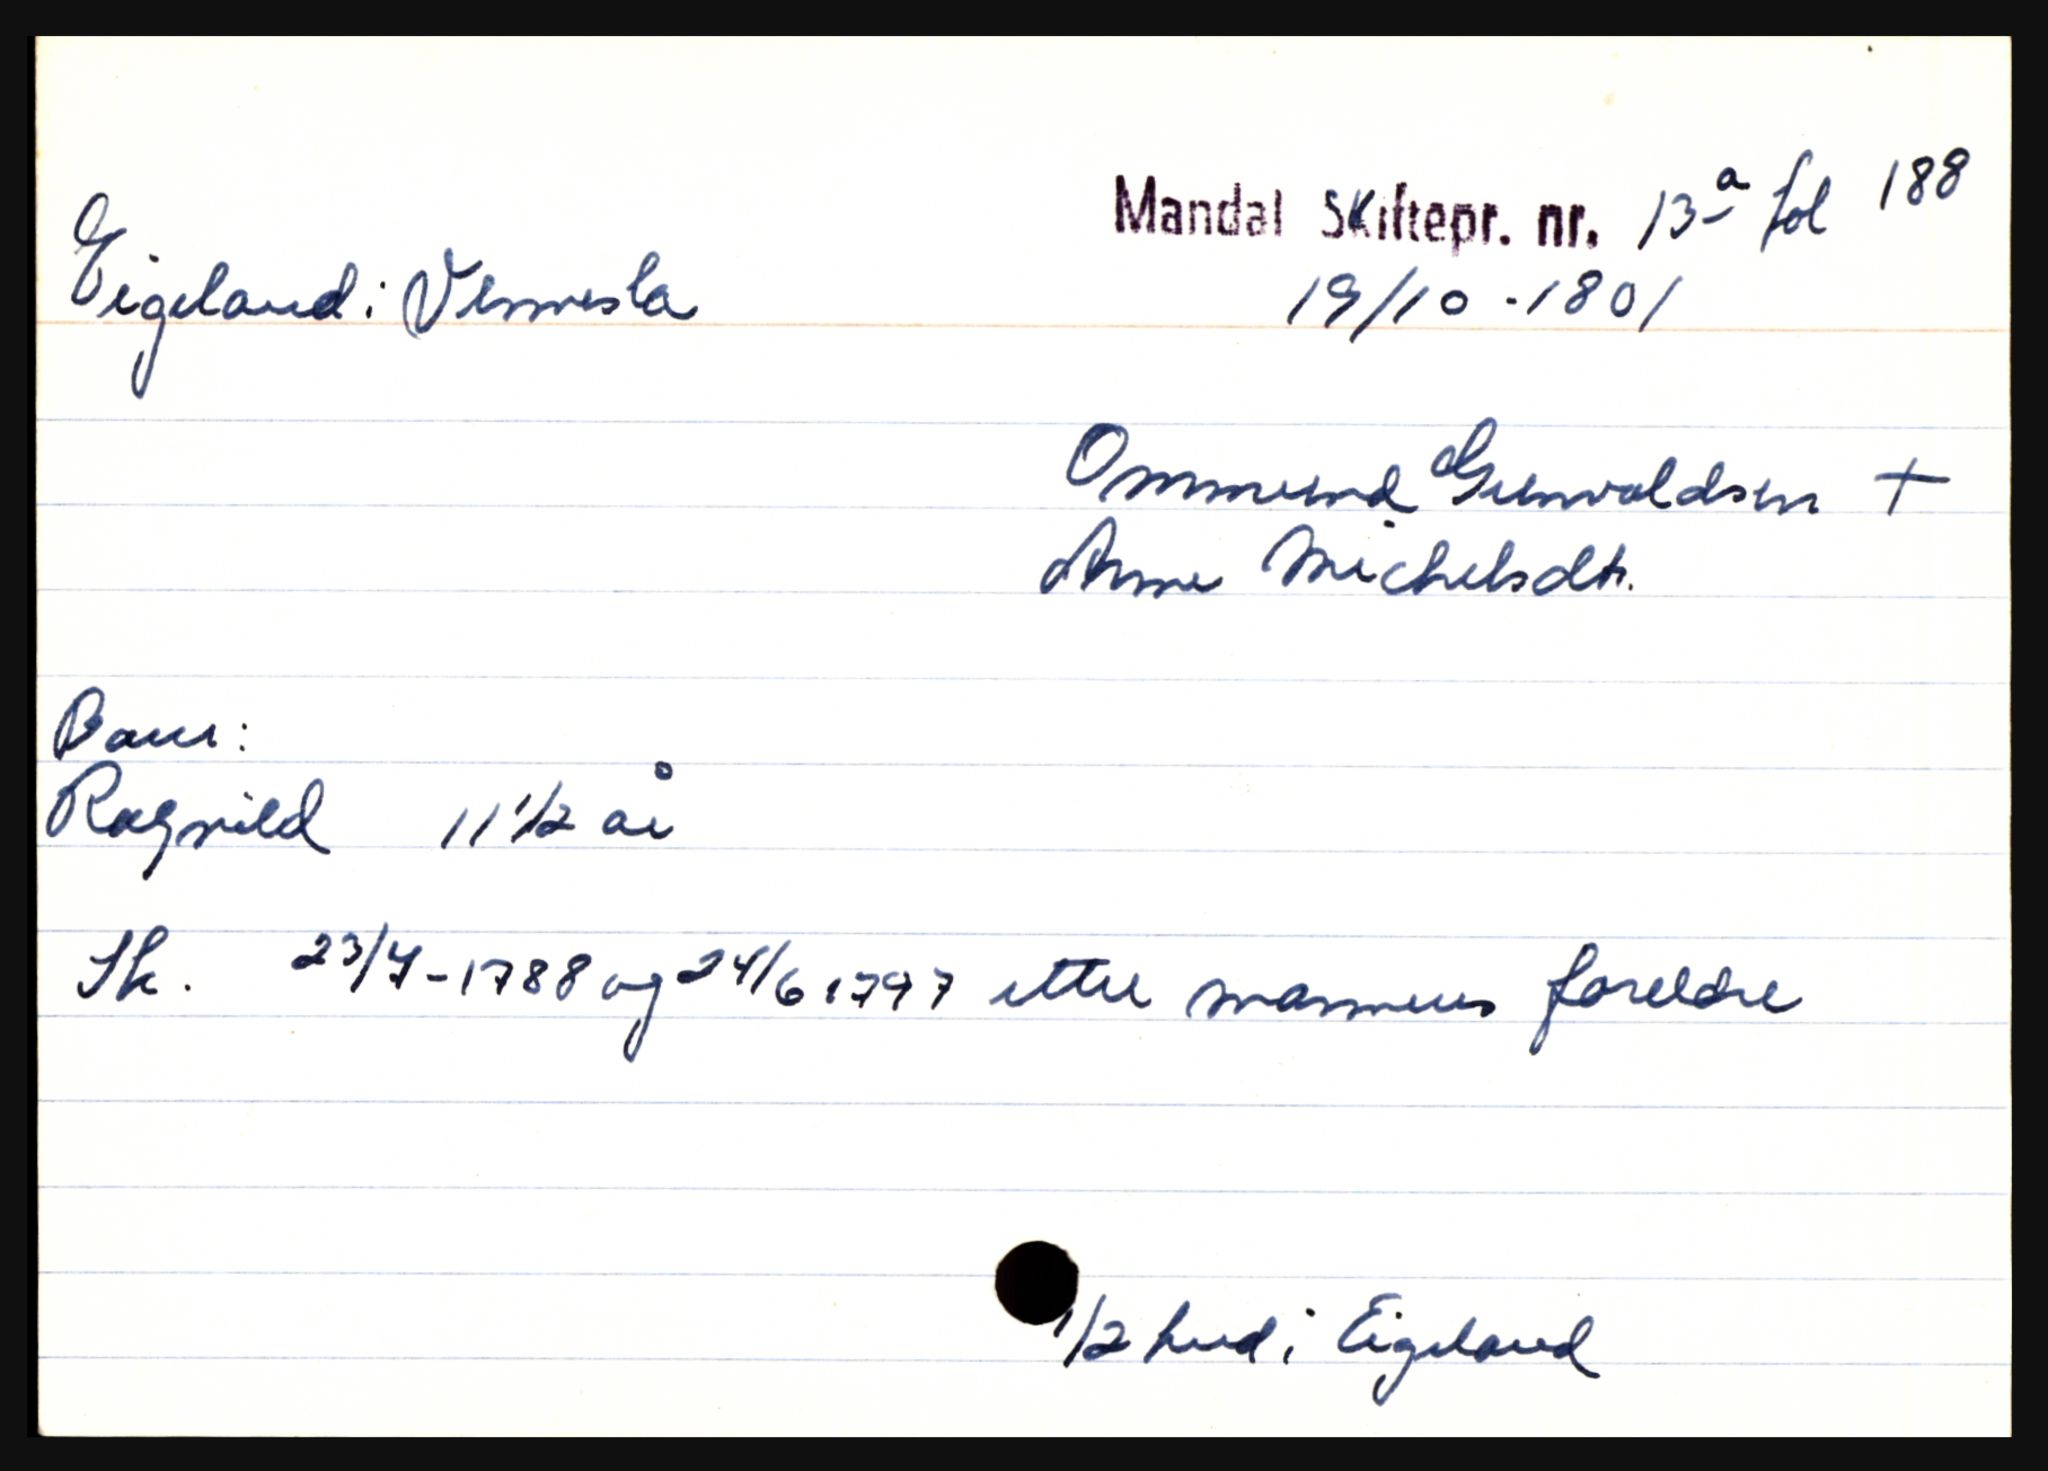 Mandal Skiftepr. nr. 13a fol 188
Eigeland i Vennesla
19/10 - 1801
Ommund Gunvaldsen +
Anne Michelsdtr.
Barn:
Ragnild 11 1/2 år
Sk. 23/7-1788 og 24/6 1797 etter mannens foreldre
1/2 hud i Eigeland